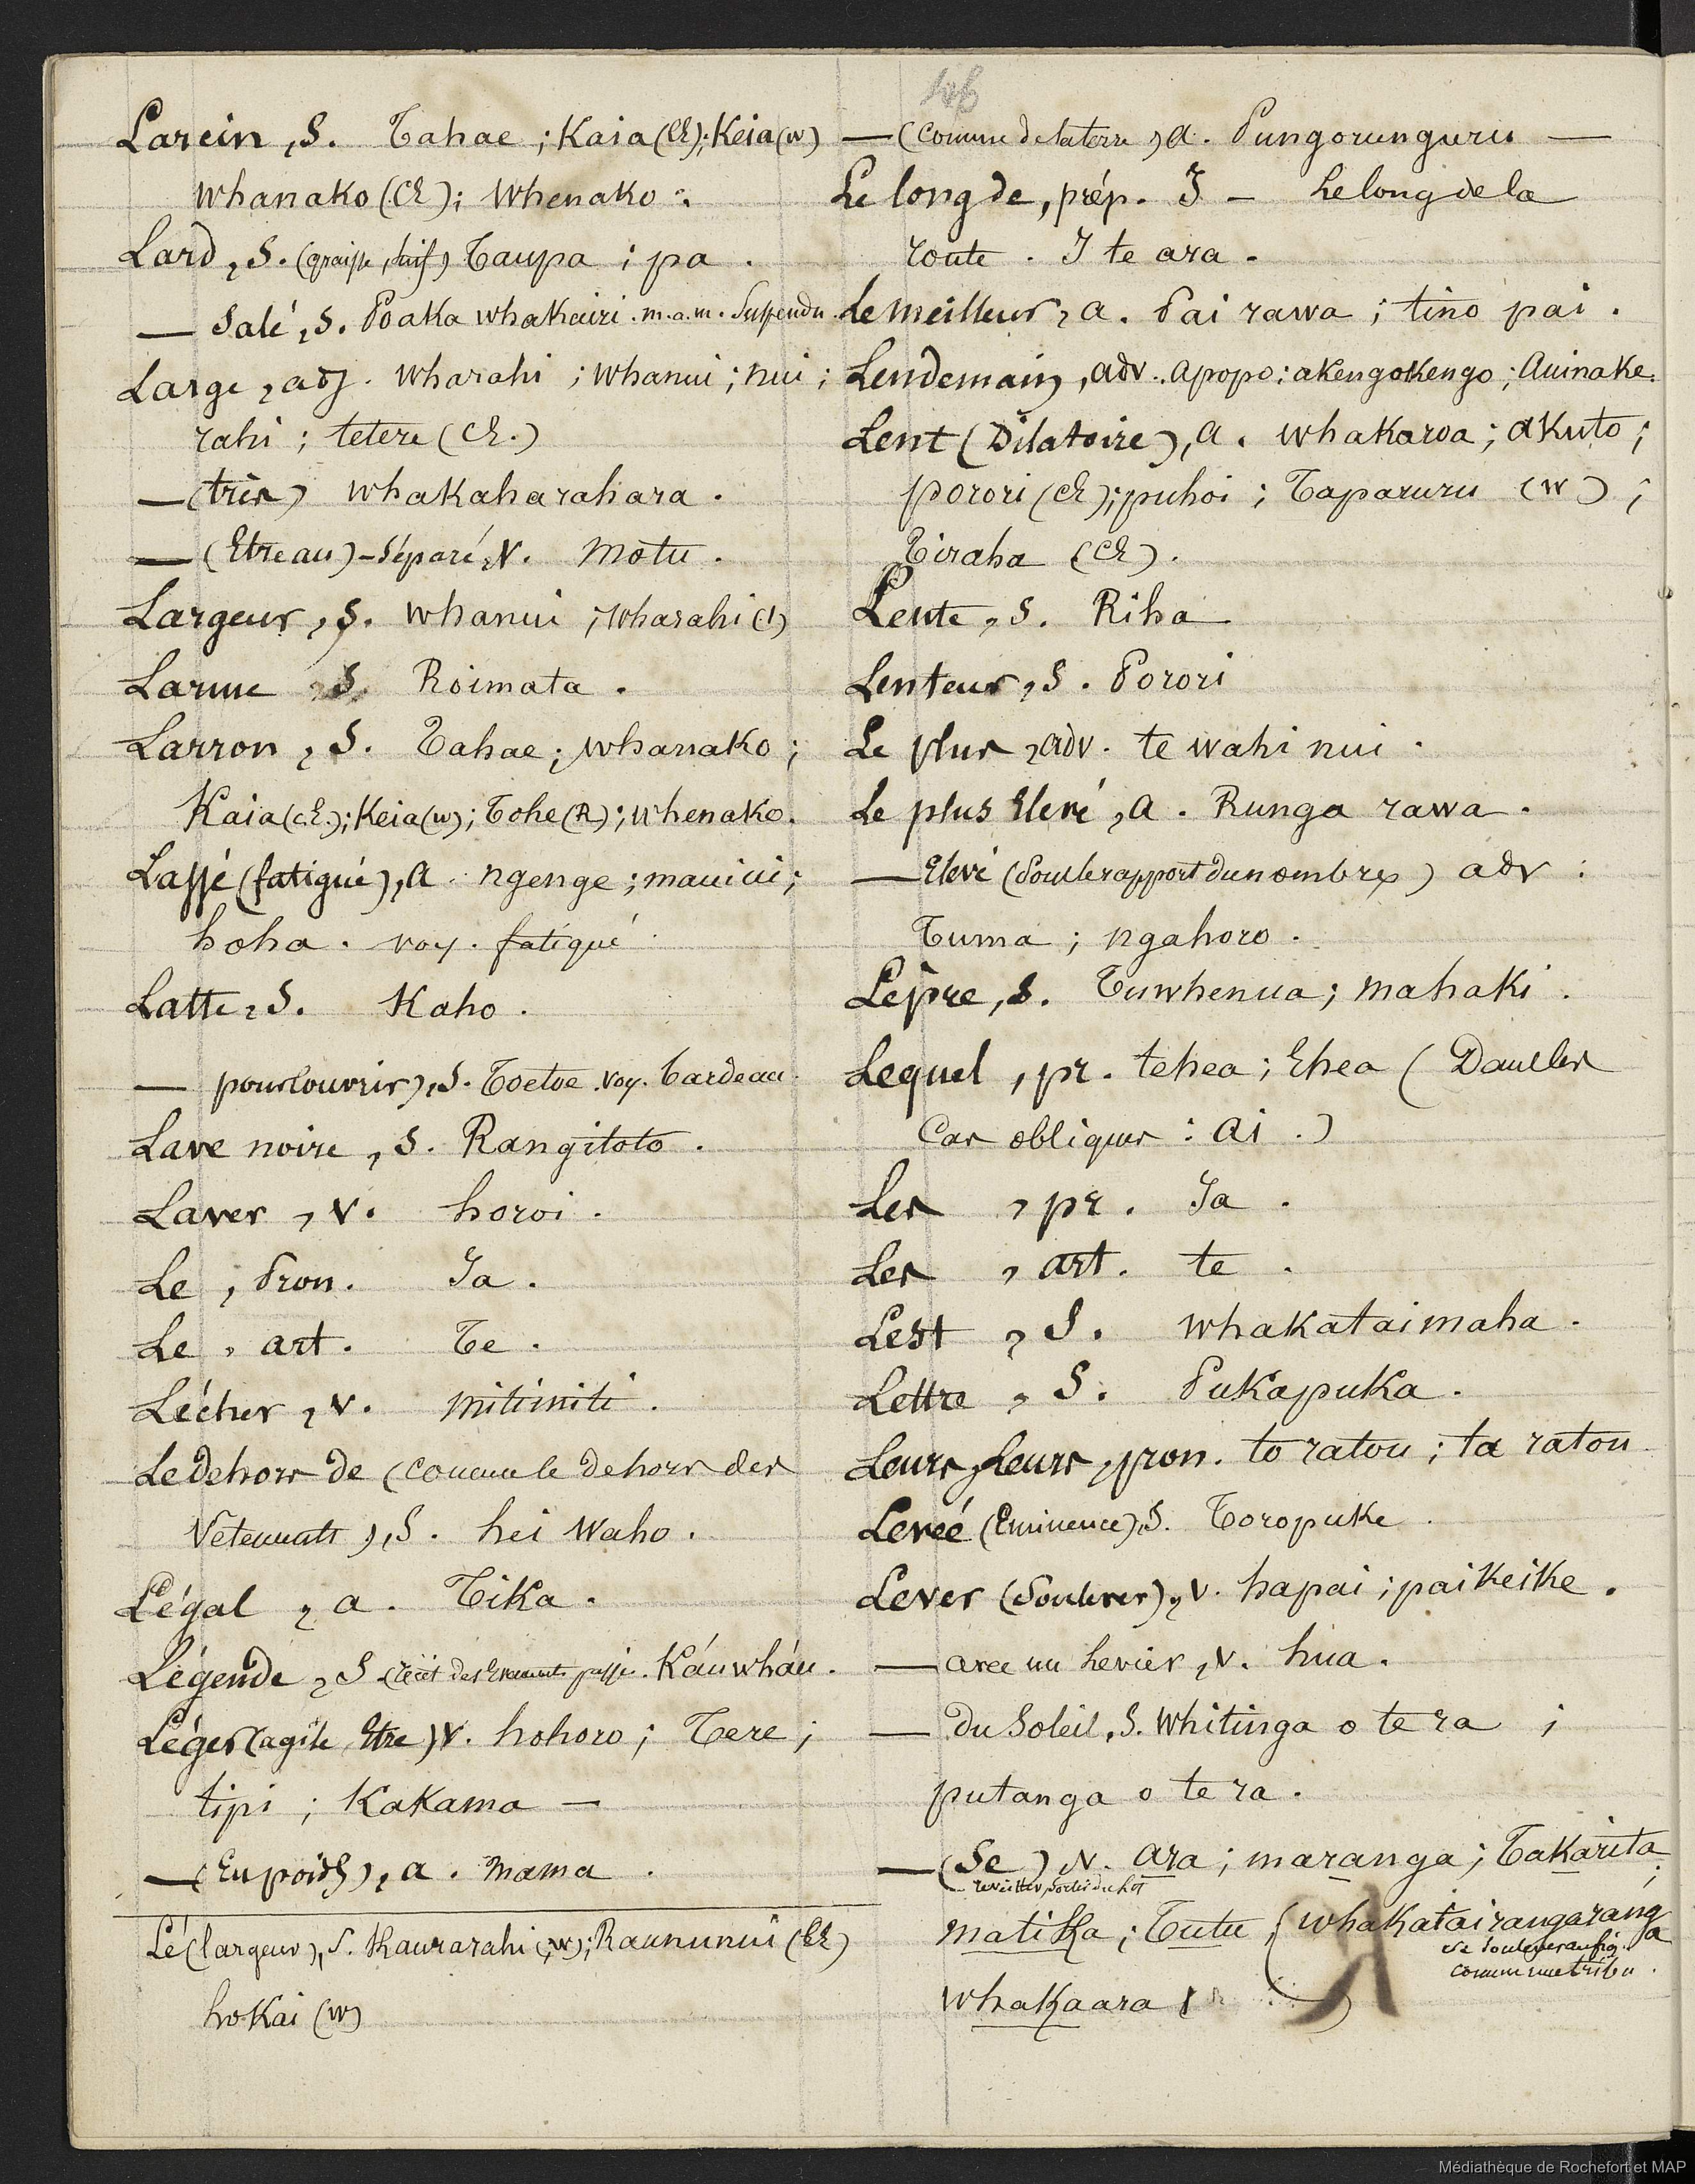 Larcin, S. Tahae ; Kaia (Ch); Keia (w)
whanako (Ch); Whenako.
Lard, S. (graisse, suif) Taupa ; pa .
— Salé, S. Poaka whakairi . m.a.m. Suspendu.
Large, adj. wharahi ; whanui ; nui ;
rahi ; tetere (Ch.)
— (très) whakaharahara .
— (Etre au) - Séparé, V. motu .
Largeur, S. whanui ; wharahi (1)
Larme, S. Roimata .
Larron, S. Tahae ; whanako ;
Kaia (Ch.); Keia (w); Tohe (R); whenako.
Lassé (fatigué), a. ngenge ; mauiui ;
hoha . voy. fatigué
Latte, S. Kaho .
— pour couvrir), S. Toetoe . voy. bardeau.
Lave noire, S. Rangitoto .
Laver, V. horoi .
Le, Pron. Ia .
Le, art. Te .
Lécher, V. mitimiti .
Le dehors de (comme le dehors des
Vêtements), S. hei waho .
Légal, a. Tika .
Légende, S. (récit des Evenements passés. Káuwháu .
Léger (agile Etre) V. hohoro ; Tere ;
tipi ; Kakama —
— (En poids), a. mama .
Lé (largeur), S. Kaurarahi (w); Raununui (Ch)
hokai (w)
— (comme de la terre), a. Pungorungoru —
Le long de, prép. I — Le long de la
route . I te ara .
Le meilleur, a. Pai rawa ; tino pai .
Lendemain, adv. apopo ; akengokengo ; Auinake.
Lent (Dilatoire), a. whakaroa ; akuto ;
porori (Ch); puhoi ; Taparuru (w) ;
Tiraha (Ch).
Lente, S. Riha
Lenteur, S. Porori
Le plus, adv. te wahi nui .
Le plus Elevé, a. Runga rawa .
— Elevé (Sous le rapport du nombre) adv :
Tuma ; ngahoro .
Lèpre, S. Tuwhenua ; mahaki .
Lequel, pr. tehea ; Ehea ( Dans les
Cas obliques : ai . )
Les, pr. Ia .
Les, art. te .
Lest, S. whakataimaha .
Lettre, S. Pukapuka .
Leurs, Leurs, pron. to ratou ; ta ratou
Leveé (Eminence), S. Toropuke .
Lever (Soulever), V. hapai ; paikeike .
— avec un levier, V. hua .
— Du Soleil, S. Whitinga o te ra ;
putanga o te ra .
— (Se) V. ara ; maranga ; Takarita ;
matika ; Tutu ; (whakatairangaranga
se soulever au fig.
comme une tribu .
whakaara